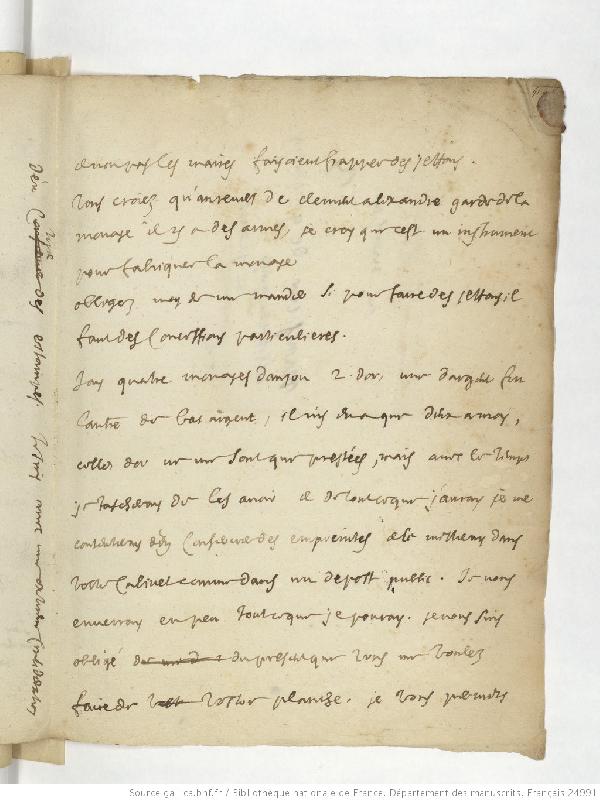 les maires faisoient frapper des Jettons.
Vous croiez qu'au revers de clement alexandre garde de la
monoye il y a des armes, je croy que c'est un instrument
pour fabriquer la monoye
obligez moy de me mander si pour faire des Jettons il
faut des Concessions particulieres.
J'ay quatre monoyes d'anjou 2. d'or, une d'argent fin
l'autre de bas argent, il n'y en a que deux a moy,
celles d'or ne me sont que prestées, mais avec le temps
je tascheray de les avoir et de tout ce que j'auray je me
contenteray d'en conserver des empreintes et le mettray dans
vostre Cabinet comme dans un depost public. Je vous
envoyeray en peu tout ce que je pouray. je vous suis
obligé du present que vous me voulez
faire de vostre planche. je vous
d'en des estampes